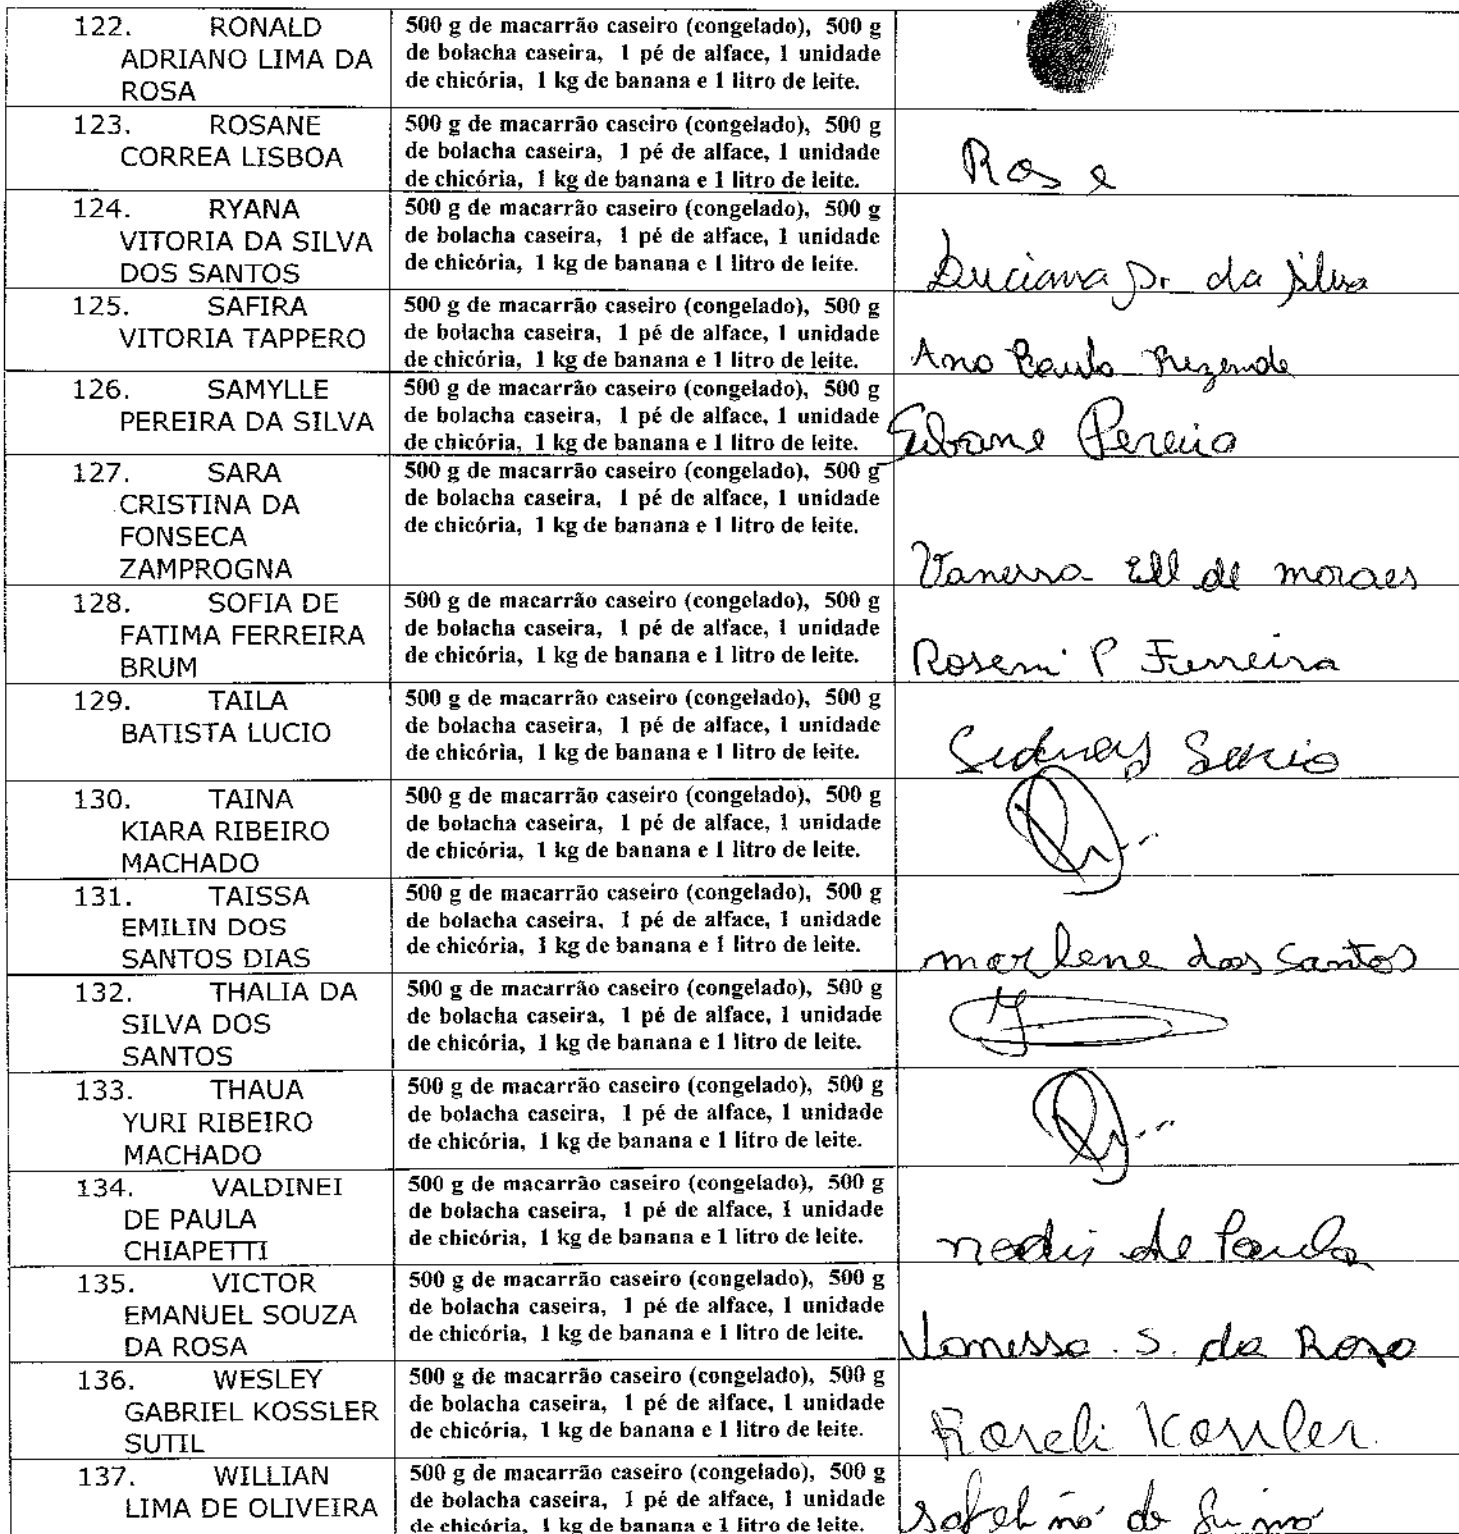 122. RONALD
ADRIANO LIMA DA
ROSA
500 g de macarrão caseiro (congelado), 500 g
de bolacha caseira, 1 pé de alface, 1 unidade
de chicória, 1 kg de banana e 1 litro de leite.
123. ROSANE
CORREA LISBOA
500 g de macarrão caseiro (congelado), 500 g
de bolacha caseira, 1 pé de alface, 1 unidade
de chicória, 1 kg de banana e 1 litro de leite.
Rose
124. RYANA
VITORIA DA SILVA
DOS SANTOS
500 g de macarrão caseiro (congelado), 500 g
de bolacha caseira, 1 pé de alface, 1 unidade
de chicória, 1 kg de banana e 1 litro de leite.
Luciana da Silva
125. SAFIRA
VITORIA TAPPERO
500 g de macarrão caseiro (congelado), 500 g
de bolacha caseira, 1 pé de alface, 1 unidade
de chicória, 1 kg de banana e 1 litro de leite.
Ana Paula Rezende
126. SAMYLLE
PEREIRA DA SILVA
500 g de macarrão caseiro (congelado), 500 g
de bolacha caseira, 1 pé de alface, 1 unidade
de chicória, 1 kg de banana e 1 litro de leite.
Pereira
127. SARA
CRISTINA DA
FONSECA
ZAMPROGNA
500 g de macarrão caseiro (congelado), 500 g
de bolacha caseira, 1 pé de alface, 1 unidade
de chicória, 1 kg de banana e 1 litro de leite.
Vanessa Ell de moraes
128. SOFIA DE
FATIMA FERREIRA
BRUM
500 g de macarrão caseiro (congelado), 500 g
de bolacha caseira, 1 pé de alface, 1 unidade
de chicória, 1 kg de banana e 1 litro de leite.
Roseni P Ferreira
129. TAILA
BATISTA LUCIO
500 g de macarrão caseiro (congelado), 500 g
de bolacha caseira, 1 pé de alface, 1 unidade
de chicória, 1 kg de banana e 1 litro de leite.
Sidney
130. TAINA
KIARA RIBEIRO
MACHADO
500 g de macarrão caseiro (congelado), 500 g
de bolacha caseira, 1 pé de alface, 1 unidade
de chicória, 1 kg de banana e 1 litro de leite.
131. TAISSA
EMILIN DOS
SANTOS DIAS
500 g de macarrão caseiro (congelado), 500 g
de bolacha caseira, 1 pé de alface, 1 unidade
de chicória, 1 kg de banana e 1 litro de leite.
marlene dos Santos
132. THALIA DA
SILVA DOS
SANTOS
500 g de macarrão caseiro (congelado), 500 g
de bolacha caseira, 1 pé de alface, 1 unidade
de chicória, 1 kg de banana e 1 litro de leite.
133. THAUA
YURI RIBEIRO
MACHADO
500 g de macarrão caseiro (congelado), 500 g
de bolacha caseira, 1 pé de alface, 1 unidade
de chicória, 1 kg de banana e 1 litro de leite.
134. VALDINEI
DE PAULA
CHIAPETTI
500 g de macarrão caseiro (congelado), 500 g
de bolacha caseira, 1 pé de alface, 1 unidade
de chicória, 1 kg de banana e 1 litro de leite.
de Paula
135. VICTOR
EMANUEL SOUZA
DA ROSA
500 g de macarrão caseiro (congelado), 500 g
de bolacha caseira, 1 pé de alface, 1 unidade
de chicória, 1 kg de banana e 1 litro de leite.
Vanessa. S. da Rosa
136. WESLEY
GABRIEL KOSSLER
SUTIL
500 g de macarrão caseiro (congelado), 500 g
de bolacha caseira, 1 pé de alface, 1 unidade
de chicória, 1 kg de banana e 1 litro de leite.
Roseli Kossler
137. WILLIAN
LIMA DE OLIVEIRA
500 g de macarrão caseiro (congelado), 500 g
de bolacha caseira, 1 pé de alface, 1 unidade
de chicória, 1 kg de banana e 1 litro de leite.